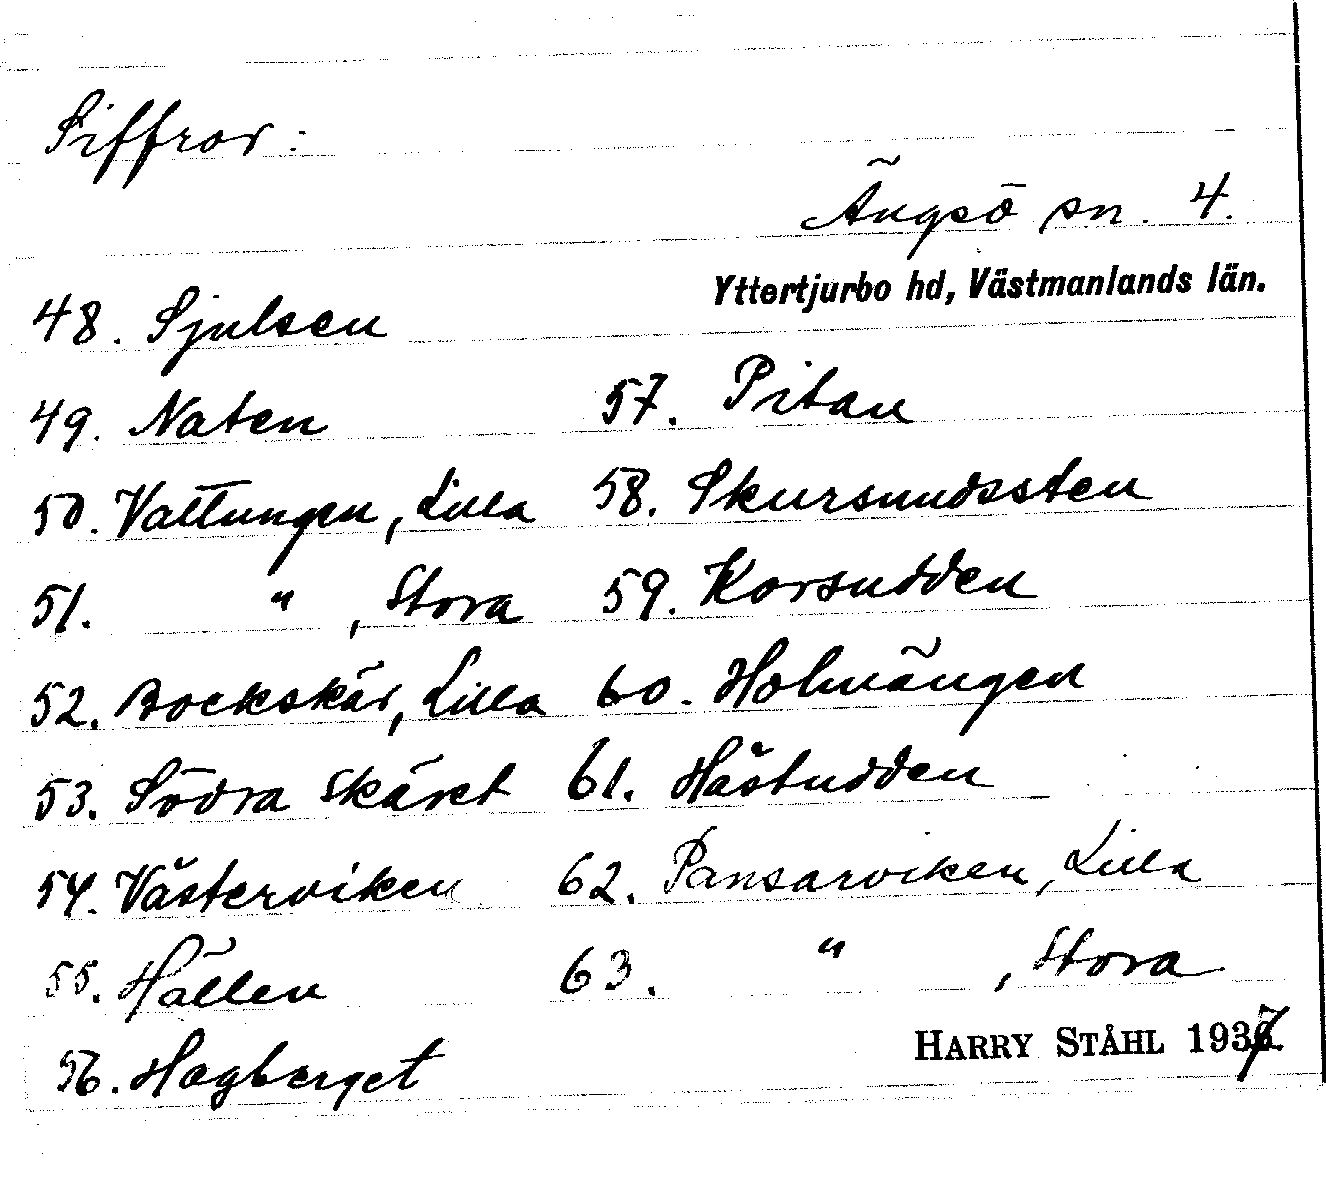 Siffror:
Ängsö sn. 4.
Yttertjurbo hd, Västmanlands län.
48. Sjulsen
49. Naten
50. Vattungen, Lilla
51. " , Stora
52. Bockskär, Lilla
53. Södra Skäret
54. Västerviken
55. Hällen
56. Hagberget
57. Pitan
58. Skursundssten
59. Korsudden
60. Holmängen
61. Hästudden
62. Pansarviken, Lilla
63. " , Stora
HARRY STÅHL 1937